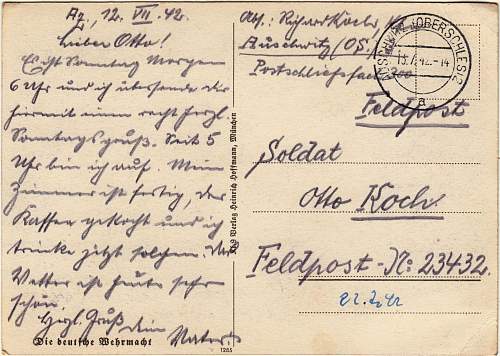 Az, 12. VII. 42.
Lieber Otto!
Es ist Sonntag Morgen
6 Uhr und ich übersende Dir
hiermit einen recht herzl.
Sonntagsgruß. Seit 5
Uhr bin ich auf. Mein
Zimmer ist fertig, der
Kaffee gekocht und ich
trinke jetzt solchen. Das
Wetter ist heute sehr
schön.
Herzl. Gruß
dein Vater
Die deutsche Wehrmacht
1285
Verlag Heinrich Hoffmann, München
Abs.: Richard Koch,
Auschwitz /OS.
Postschließfach
AUSCHWITZ (OBERSCHLES) 2
13.7.42.-14
a
Feldpost
Soldat
Otto Koch.
Feldpost-N: 23432.